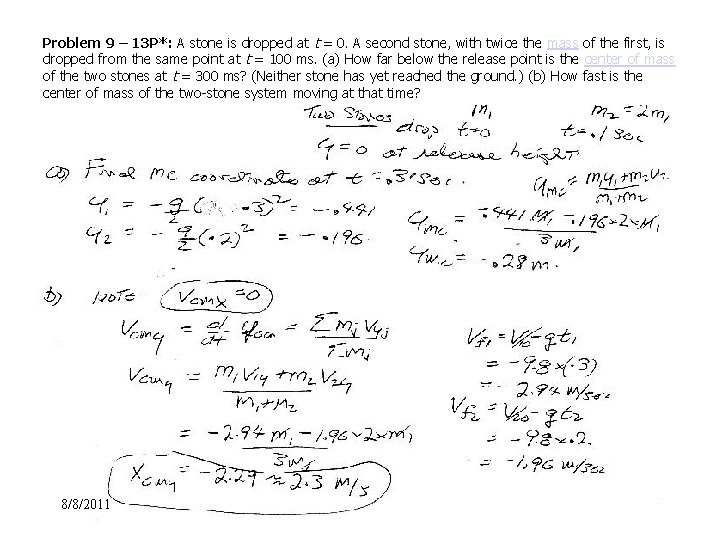 Problem 9 – 13P*: A stone is dropped at t = 0. A second stone, with twice the mass of the first, is
dropped from the same point at t = 100 ms. (a) How far below the release point is the center of mass
of the two stones at t = 300 ms? (Neither stone has yet reached the ground.) (b) How fast is the
center of mass of the two-stone system moving at that time?
Two Stones m1 m2 = 2m1
drop t=0 t=.1 sec
y=0 at release height
(a) Find mc coordinate at t=.3 sec.
y1 = -g/2 (.3)^2 = -.441
y2 = -g/2 (.2)^2 = -.196
ymc = m1y1+m2y2 / m1+m2
ymc = -.441 m1 - .196×2×m1 / 3m1
ymc = -.28 m.
b) NOTE Vcmx = 0
Vcmy = d/dt ycm = Σ mj Vyj / Σ mj
Vcmy = m1V1y + m2V2y / m1+m2
= -2.94 m1 - 1.96×2×m1 / 3m1
Xcmy = -2.29 ≈ 2.3 m/s
Vf1 = V10 - gt1
= -9.8×(.3)
= -2.94 m/sec
Vf2 = V20 - gt2
= -9.8×.2
= -1.96 m/sec
8/8/2011